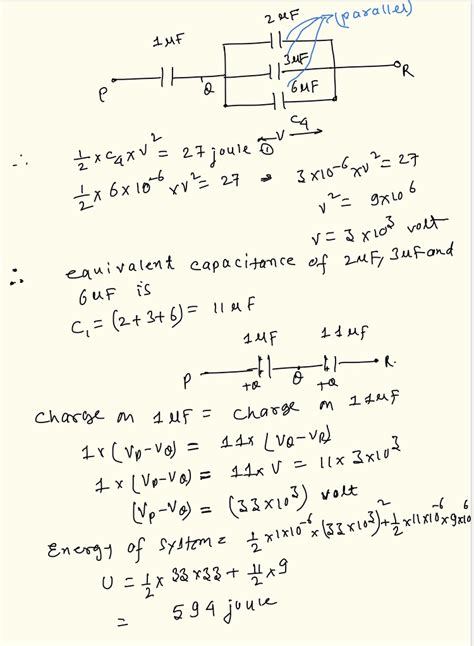 2μF (parallel)
1μF
3μF
P Q R
6μF
C4
∴ 1/2 × C4 × V² = 27 joule ① ←V→
1/2 × 6×10⁻⁶ × V² = 27 ⇒ 3×10⁻⁶ × V² = 27
V² = 9×10⁶
V = 3×10³ volt
∴ equivalent capacitance of 2μF, 3μF and
6μF is
C₁ = (2+3+6) = 11μF
1μF 11μF
P Q R
+Q +Q
Charge on 1μF = Charge on 11μF
1×(Vp-VQ) = 11×(VQ-VR)
1×(Vp-VQ) = 11×V = 11×3×10³
(Vp-VQ) = (33×10³) volt
Energy of system = 1/2×1×10⁻⁶×(33×10³)²+1/2×11×10⁻⁶×9×10⁶
U = 1/2 × 33×33 + 11/2 × 9
= 594 joule